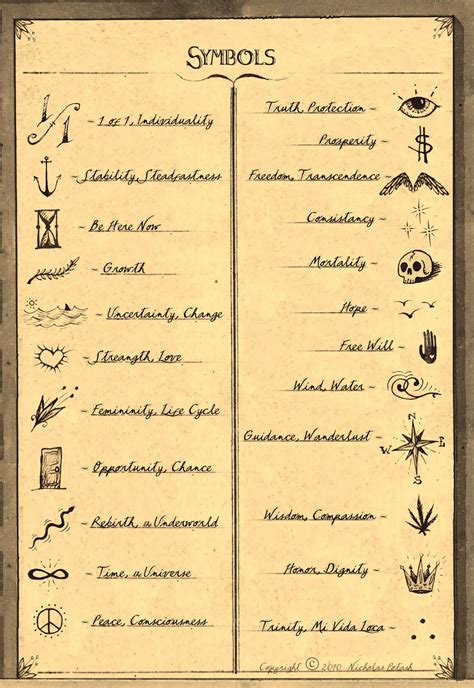 SYMBOLS
1/1 ~ 1 of 1, Individuality
~ Stability, Steadfastness
~ Be Here Now
~ Growth
~ Uncertainty, Change
~ Streangth, Love
~ Femininity, Life Cycle
~ Opportunity, Chance
~ Rebirth, Underworld
~ Time, Universe
~ Peace, Consciousness
Truth, Protection ~
Prosperity ~ $
Freedom, Transcendence ~
Consistancy ~
Mortality ~
Hope ~
Free Will ~
Wind, Water ~
Guidance, Wanderlust ~
N E
W S
Wisdom, Compassion ~
Honor, Dignity ~
Trinity, Mi Vida Loca ~
Copyright © 2010 Nicholas Polash